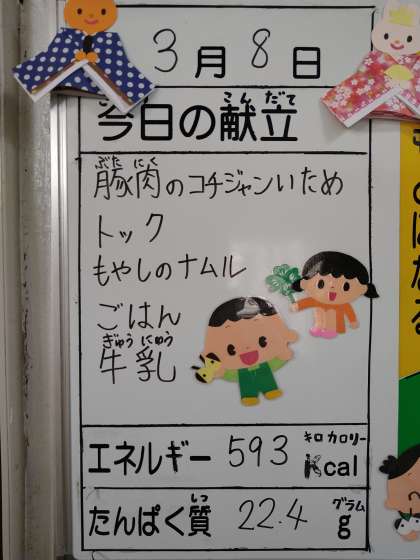 3月8日
今日の献立
こんだて
豚肉のコチジャンいため
ぶた にく
トック
もやしのナムル
ごはん
牛乳
ぎゅう にゅう
エネルギー 593 Kcal
キロ カロリー
たんぱく質 22.4 g
しつ グラム